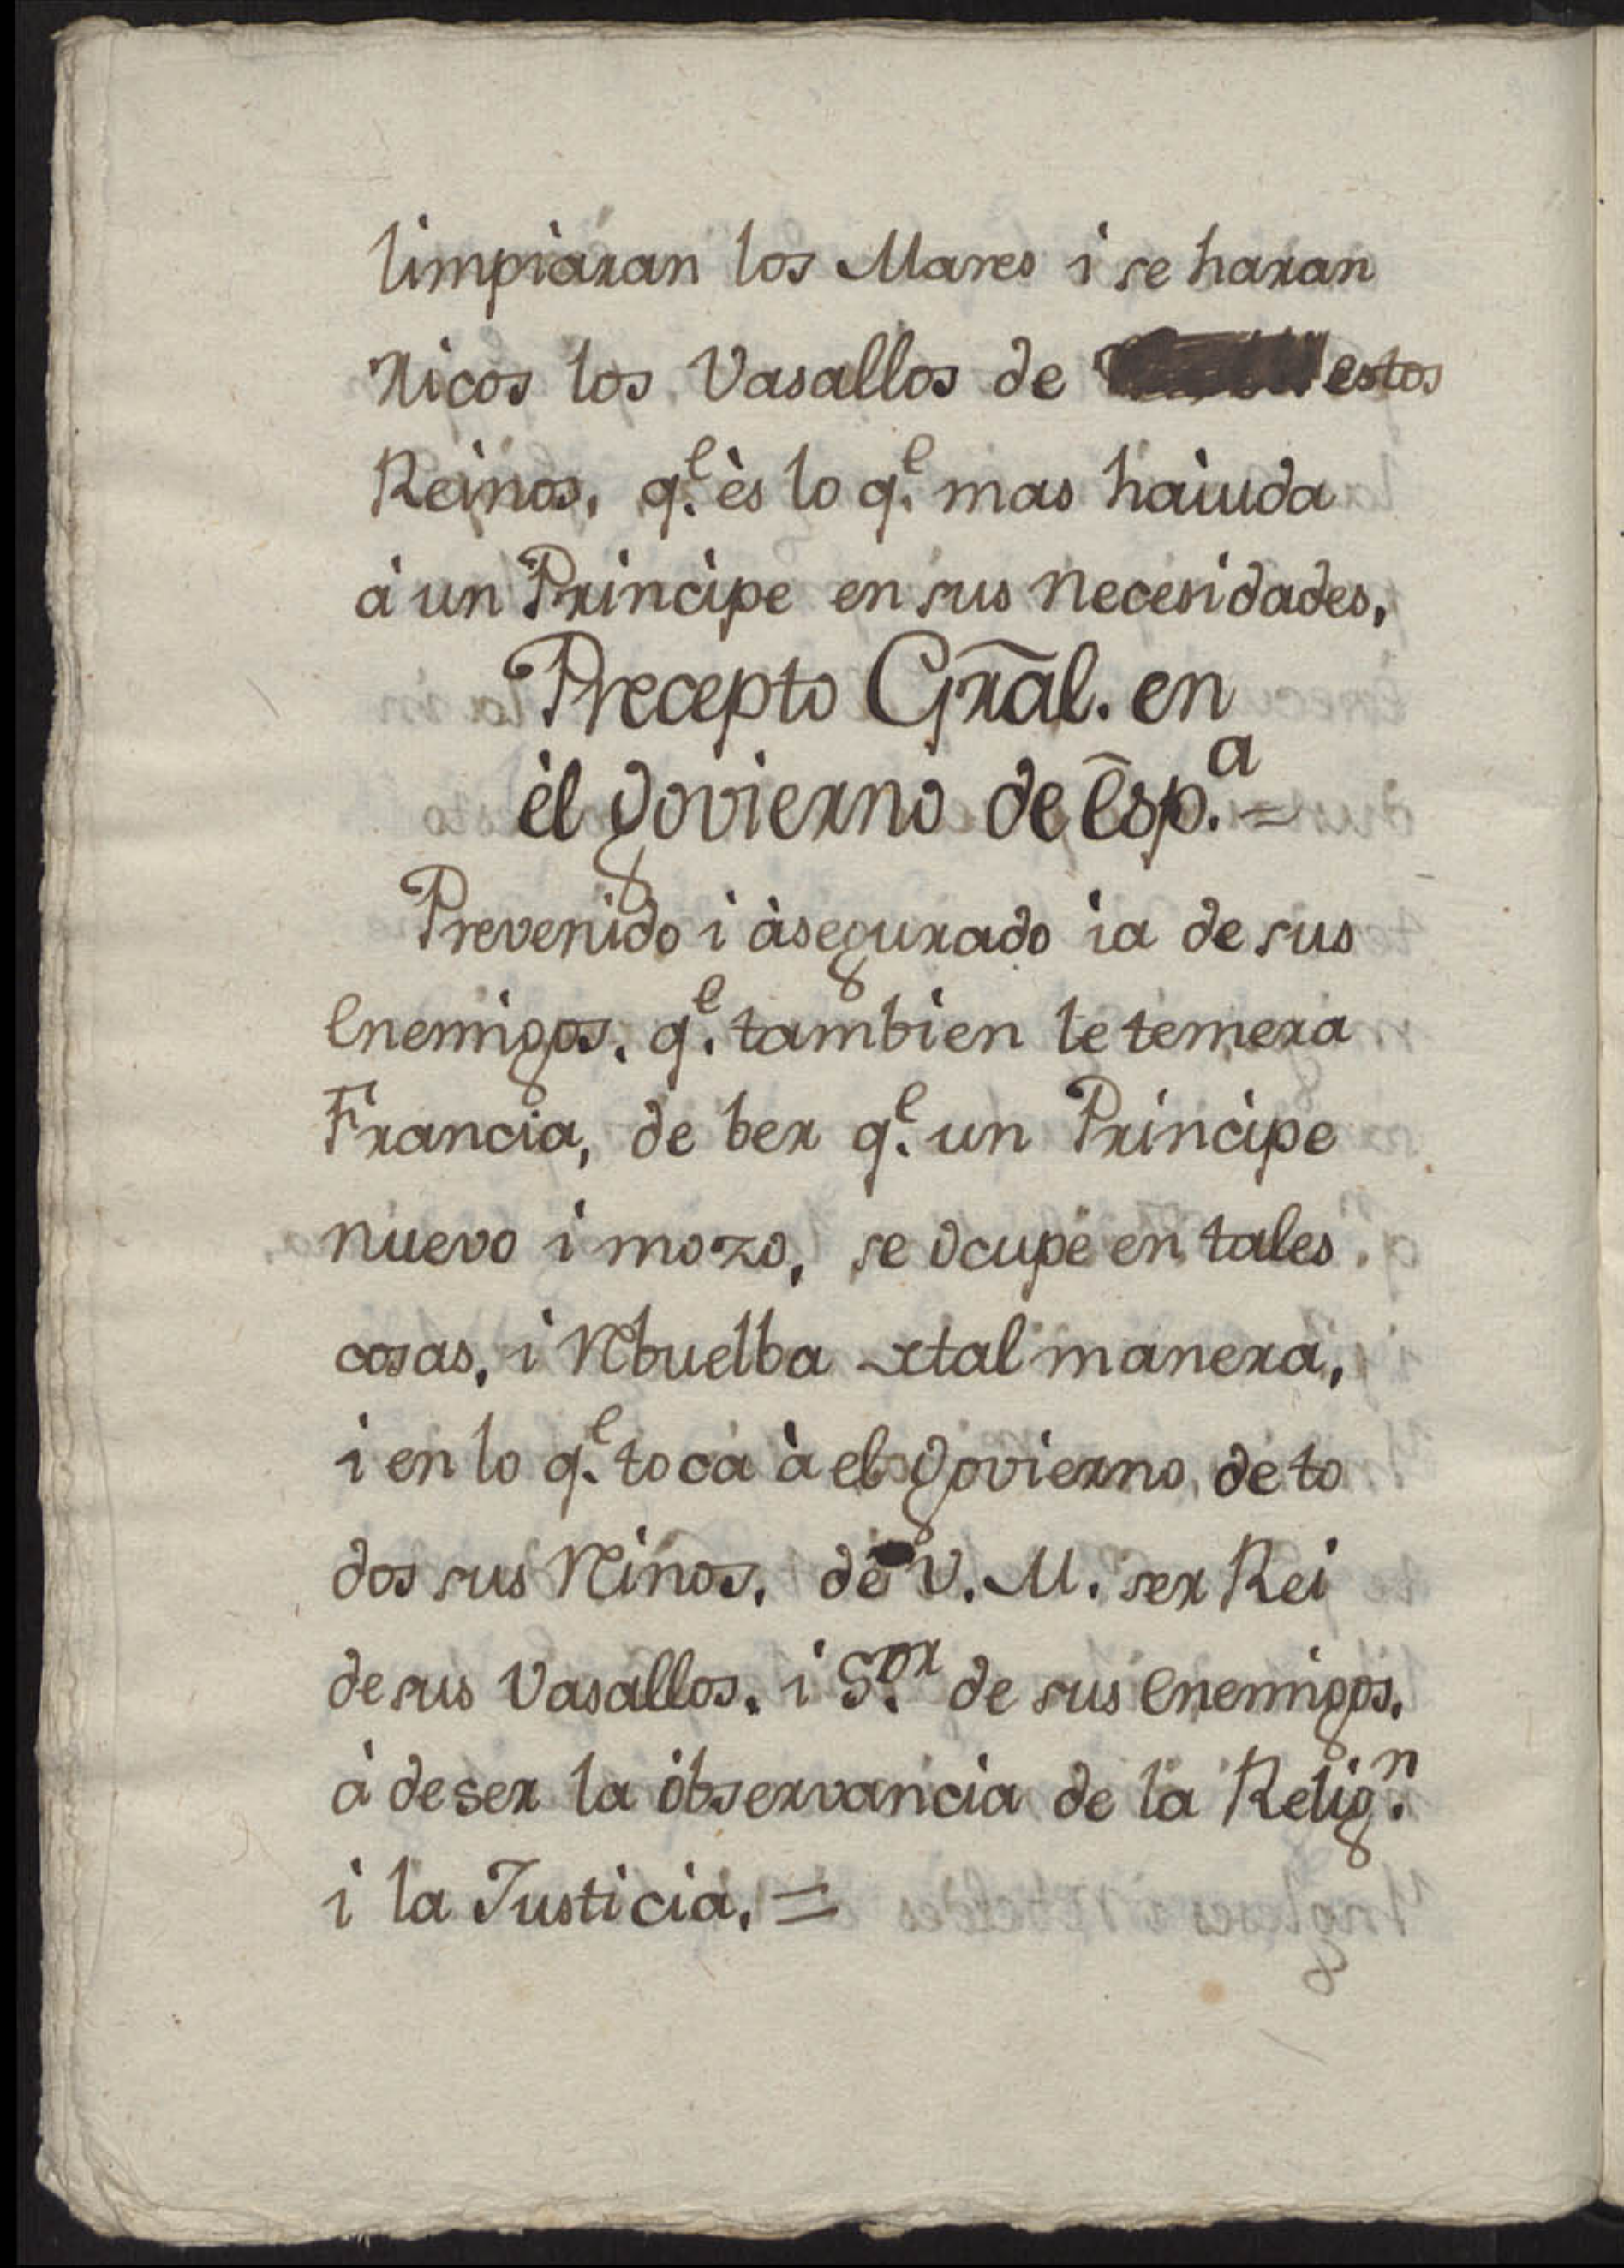 limpiaran los Mares i se haran
Ricos los Vasallos de estos
Reinos, q.^e ès lo q.^e mas haiuda
à un Principe en sus necesidades,
Precepto Gr̃al. en
èl govierno de Esp.^a =
Prevenido i àsegurado ia de sus
Enemigos, q.^e tambien le temera
Francia, de ber q.^e un Principe
nuevo i mozo, se ocupe en tales
cosas, i Rebuelba tal manera,
i en lo q.^e toca à el govierno de to
dos sus Reinos, de V. M. ser Rei
de sus Vasallos, i S.^or de sus Enemigos,
à de ser la observancia de la Relig.^n
i la Justicia, =